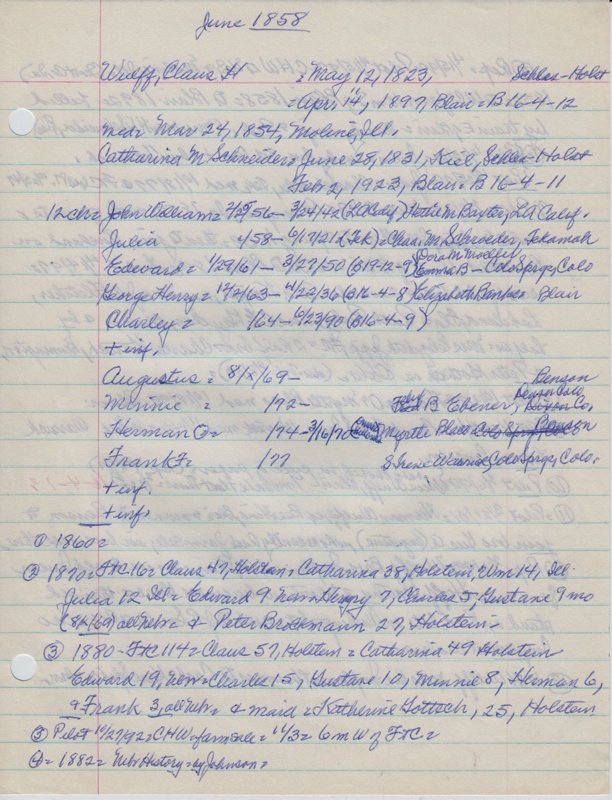 June 1858
Wulff, Claus H = May 12, 1823, Schles-Holst
= Apri 14, 1897, Blair = B16-4-12
med = Mar 24, 1854, Moline, Ill.
Catharina M Schneider = June 28, 1831, Kiel, Schles-Holst
Feb 2, 1923, Blair = B16-4-11
12 ch = John William = 2/25/56 - 3/24/42 (LA Calif) Hettie M. Baxter, LA Calif.
Julia 4/58 - 6/17/21 (Tek) = Chas. M. Schroeder, Tekamah
Edward = 1/29/61 - 3/27/50 (B19-12-9) Dora M Moeller Emma B - Colo Sprgs, Colo
George Henry = 12/2/63 - 4/22/36 (B16-4-8) Elizabeth Blair
Charley = /64 - 6/23/90 (B16-4-9)
+ inf.
Augustus = 8/x/69 -
Minnie = /72 - B Ebener, Benson
Herman = /74 - 3/16/70 Myrtle Benson
Frank F = /77 S Irene Colo Sprgs, Colo.
+ inf.
+ inf.
① 1860 =
② 1870 = FTC 16 = Claus 47, Holstein, Catharina 38, Holstein, Wm 14, Ill.
Julia 12 Ill = Edward 9 Neb = Henry 7, Charles 5, Gustane 9 mo
(8/x/69) all Neb = & Peter Brockmann 27, Holstein.
③ 1880 - FTC 114 = Claus 57, Holstein = Catharina 49 Holstein
Edward 19, Neb = Charles 15, Gustane 10, Minnie 8, Herman 6,
& Frank 3, all Neb = & maid = Katherine Gottsch, 25, Holstein
③ Pilot 10/27/92 = CHW = farm sale = 11/3 = 6 m W of FTC =
④ = 1882 = Neb History = by Johnson =